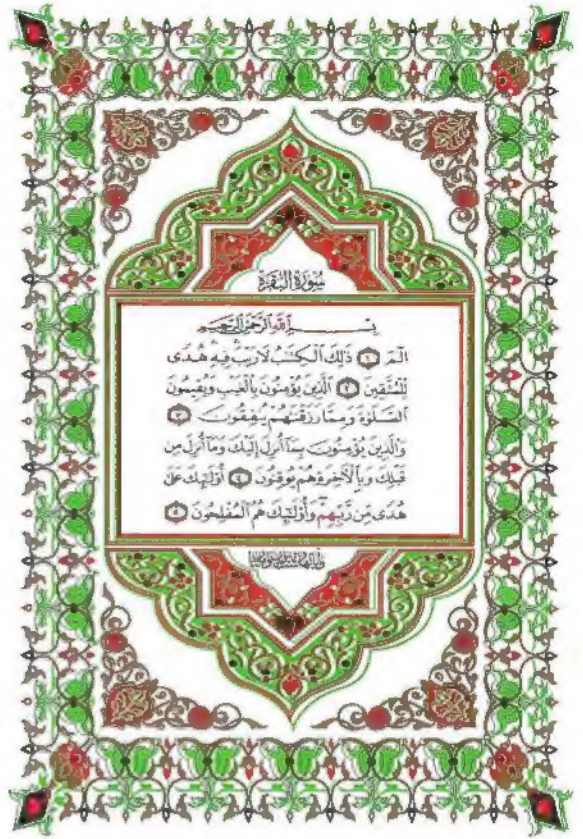 سُورَةُ الْبَقَرَةِ
بِسْمِ اللَّهِ الرَّحْمَٰنِ الرَّحِيمِ
الٓمٓ ١ ذَٰلِكَ الْكِتَٰبُ لَا رَيْبَ فِيهِ هُدًى
لِّلْمُتَّقِينَ ٢ الَّذِينَ يُؤْمِنُونَ بِالْغَيْبِ وَيُقِيمُونَ
الصَّلَوٰةَ وَمِمَّا رَزَقْنَٰهُمْ يُنفِقُونَ ٣
وَالَّذِينَ يُؤْمِنُونَ بِمَآ أُنزِلَ إِلَيْكَ وَمَآ أُنزِلَ مِن
قَبْلِكَ وَبِالْأَخِرَةِ هُمْ يُوقِنُونَ ٤ أُوْلَٰٓئِكَ عَلَىٰ
هُدًى مِّن رَّبِّهِمْ وَأُوْلَٰٓئِكَ هُمُ الْمُفْلِحُونَ ٥